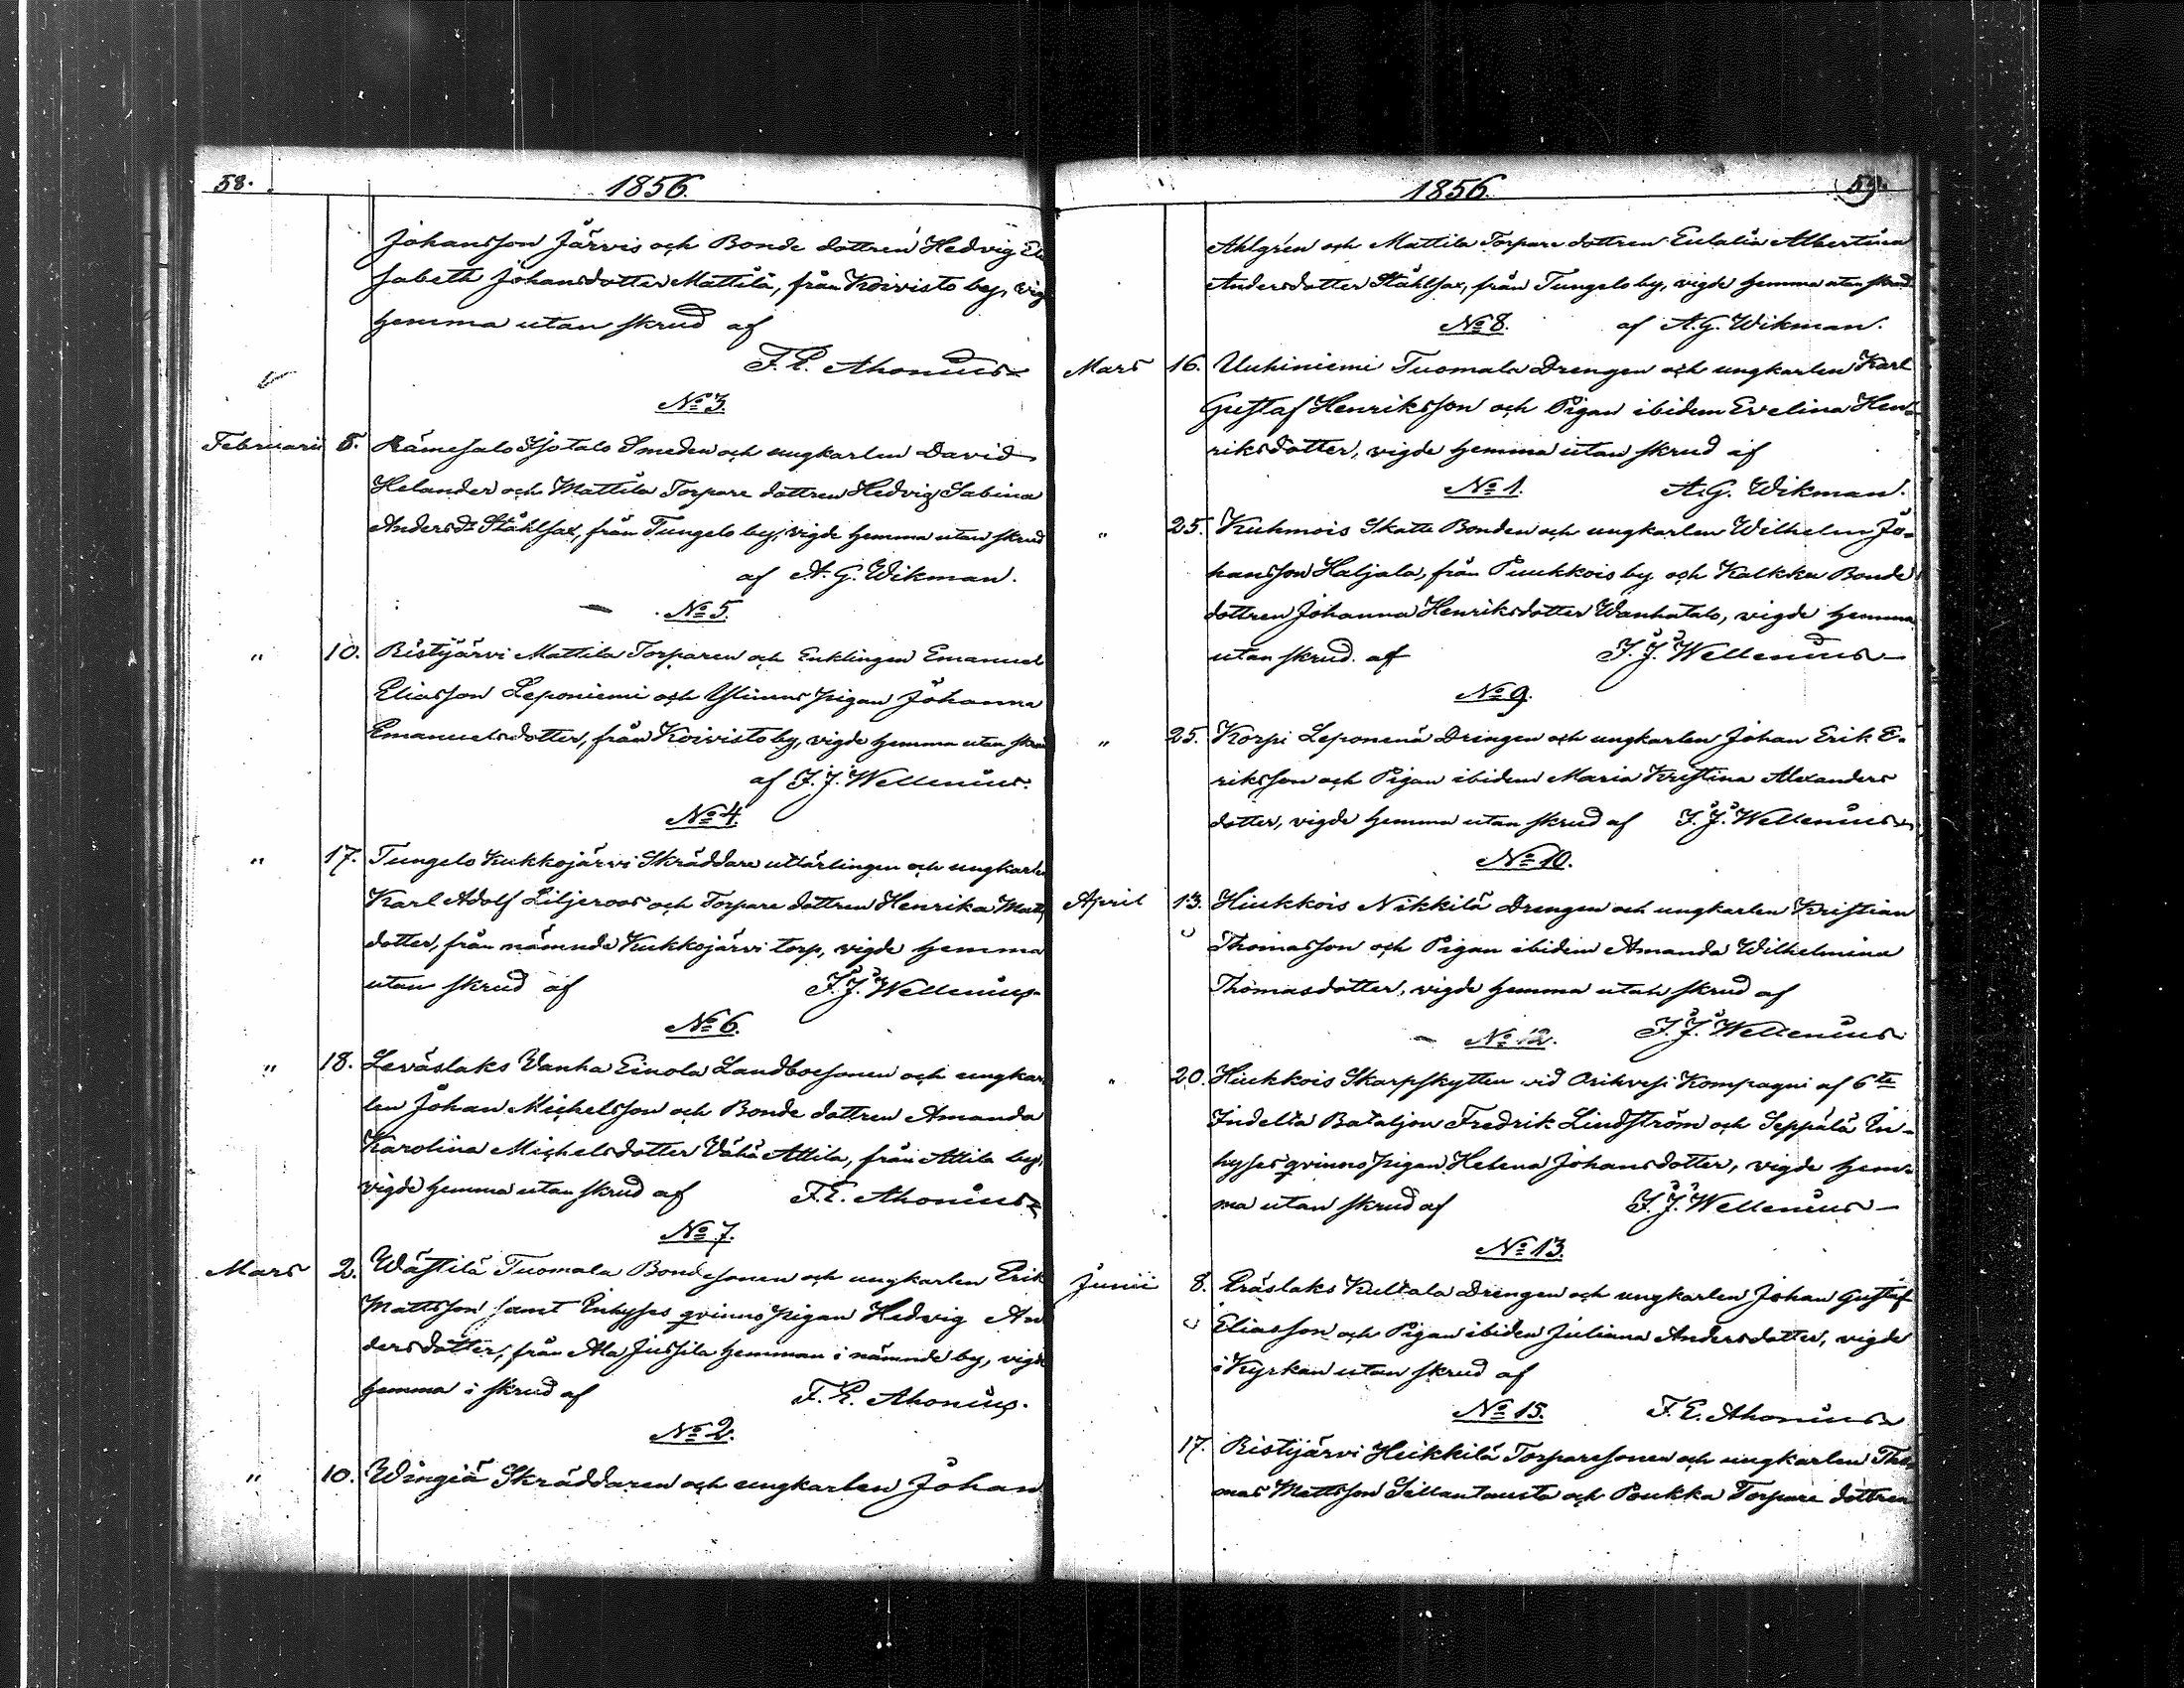 58.
1856.
Johansson Järvis och Bonde dottren Hedvig Eli
sabeth Johansdotter Mattila, från Koivisto by, vig
hemma utan skrud af
F. E. Ahonius
No 3.
Februarii 5. Rämesalo Isotalo Smeden och ungkarlen David
Helander och Mattila Torpare dottren Hedvig Sabina
Andersdr Stählsax, från Tungelo by, vigde hemma utan skrud
af A. G. Wikman.
No 5.
" 10. Ristijärvi Mattila Torparen och Enklingen Emanuel
Eliasson Leponiemi och Ylinens pigan Johanna
Emanuelsdotter, från Koivisto by, vigde hemma utan skrud
af J. J. Wellenius.
No 4.
" 17. Tungelo Kukkojärvi Skräddare utlärlingen och ungkarle
Karl Adolf Liljeroos och Torpare dottren Henrika Matts
dotter, från nämnde Kukkojärvi torp, vigde hemma
utan skrud af J. J. Wellenius
No 6.
" 18. Leväslaks Vanha Einola Landboesonen och ungkar
len Johan Michelsson och Bonde dottren Amanda
Karolina Michelsdotter Vähä Attila, från Attila by,
vigde hemma utan skrud af F. E. Ahonius
No 7.
Mars 2. Wästilä Tuomala Bondesonen och ungkarlen Erik
Mattsson samt Inhyses qvinno pigan Hedvig An
dersdotter, från Ala Jussila hemman i nämnde by, vigde
hemma i skrud af F. E. Ahonius.
No 2.
" 10. Wingiä Skräddaren och ungkarlen Johan
1856.
59.
Ahlgren och Mattila Torpare dottren Eulalia Albertina
Andersdotter Stählsax, från Tungelo by, vigde hemma utan skrud
No 8. af A. G. Wikman.
Mars 16. Uuhiniemi Tuomala Drengen och ungkarlen Karl
Gustaf Henriksson och Pigan ibidem Evelina Hen-
riksdotter, vigde hemma utan skrud af
No 1. A. G. Wikman.
" 25. Kuhmois Skatte Bonden och ungkarlen Wilhelm Jo-
hansson Haljala, från Puukkois by och Kalkku Bonde
dottren Johanna Henriksdotter Wanhatalo, vigde hemma
utan skrud af J. J. Wellenius
No 9.
" 25. Korpi Leponenä Drengen och ungkarlen Johan Erik E-
riksson och Pigan ibidem Maria Kristina Alexanders
dotter, vigde hemma utan skrud af J. J. Wellenius
No 10.
April 13. Hiukkois Nikkilä Drengen och ungkarlen Kristian
Thomasson och Pigan ibidem Amanda Wilhelmina
Thomasdotter, vigde hemma utan skrud af
No 12. J. J. Wellenius
" 20. Hiukkois Skarpskytten vid Orihvesi Kompagni af 6te
Indelta Bataljon Fredrik Lindström och Seppälä In-
hyses qvinno pigan Helena Johansdotter, vigde hem-
ma utan skrud af J. J. Wellenius
No 13.
Junii 8. Eräslaks Kultala Drengen och ungkarlen Johan Gustaf
Eliasson och Pigan ibidem Juliana Andersdotter, vigde
i Kyrkan utan skrud af
No 15. F. E. Ahonius
17. Ristijärvi Heikkilä Torparesonen och ungkarlen Tho-
mas Mattsson Sillantausta och Poukka Torpare dottren